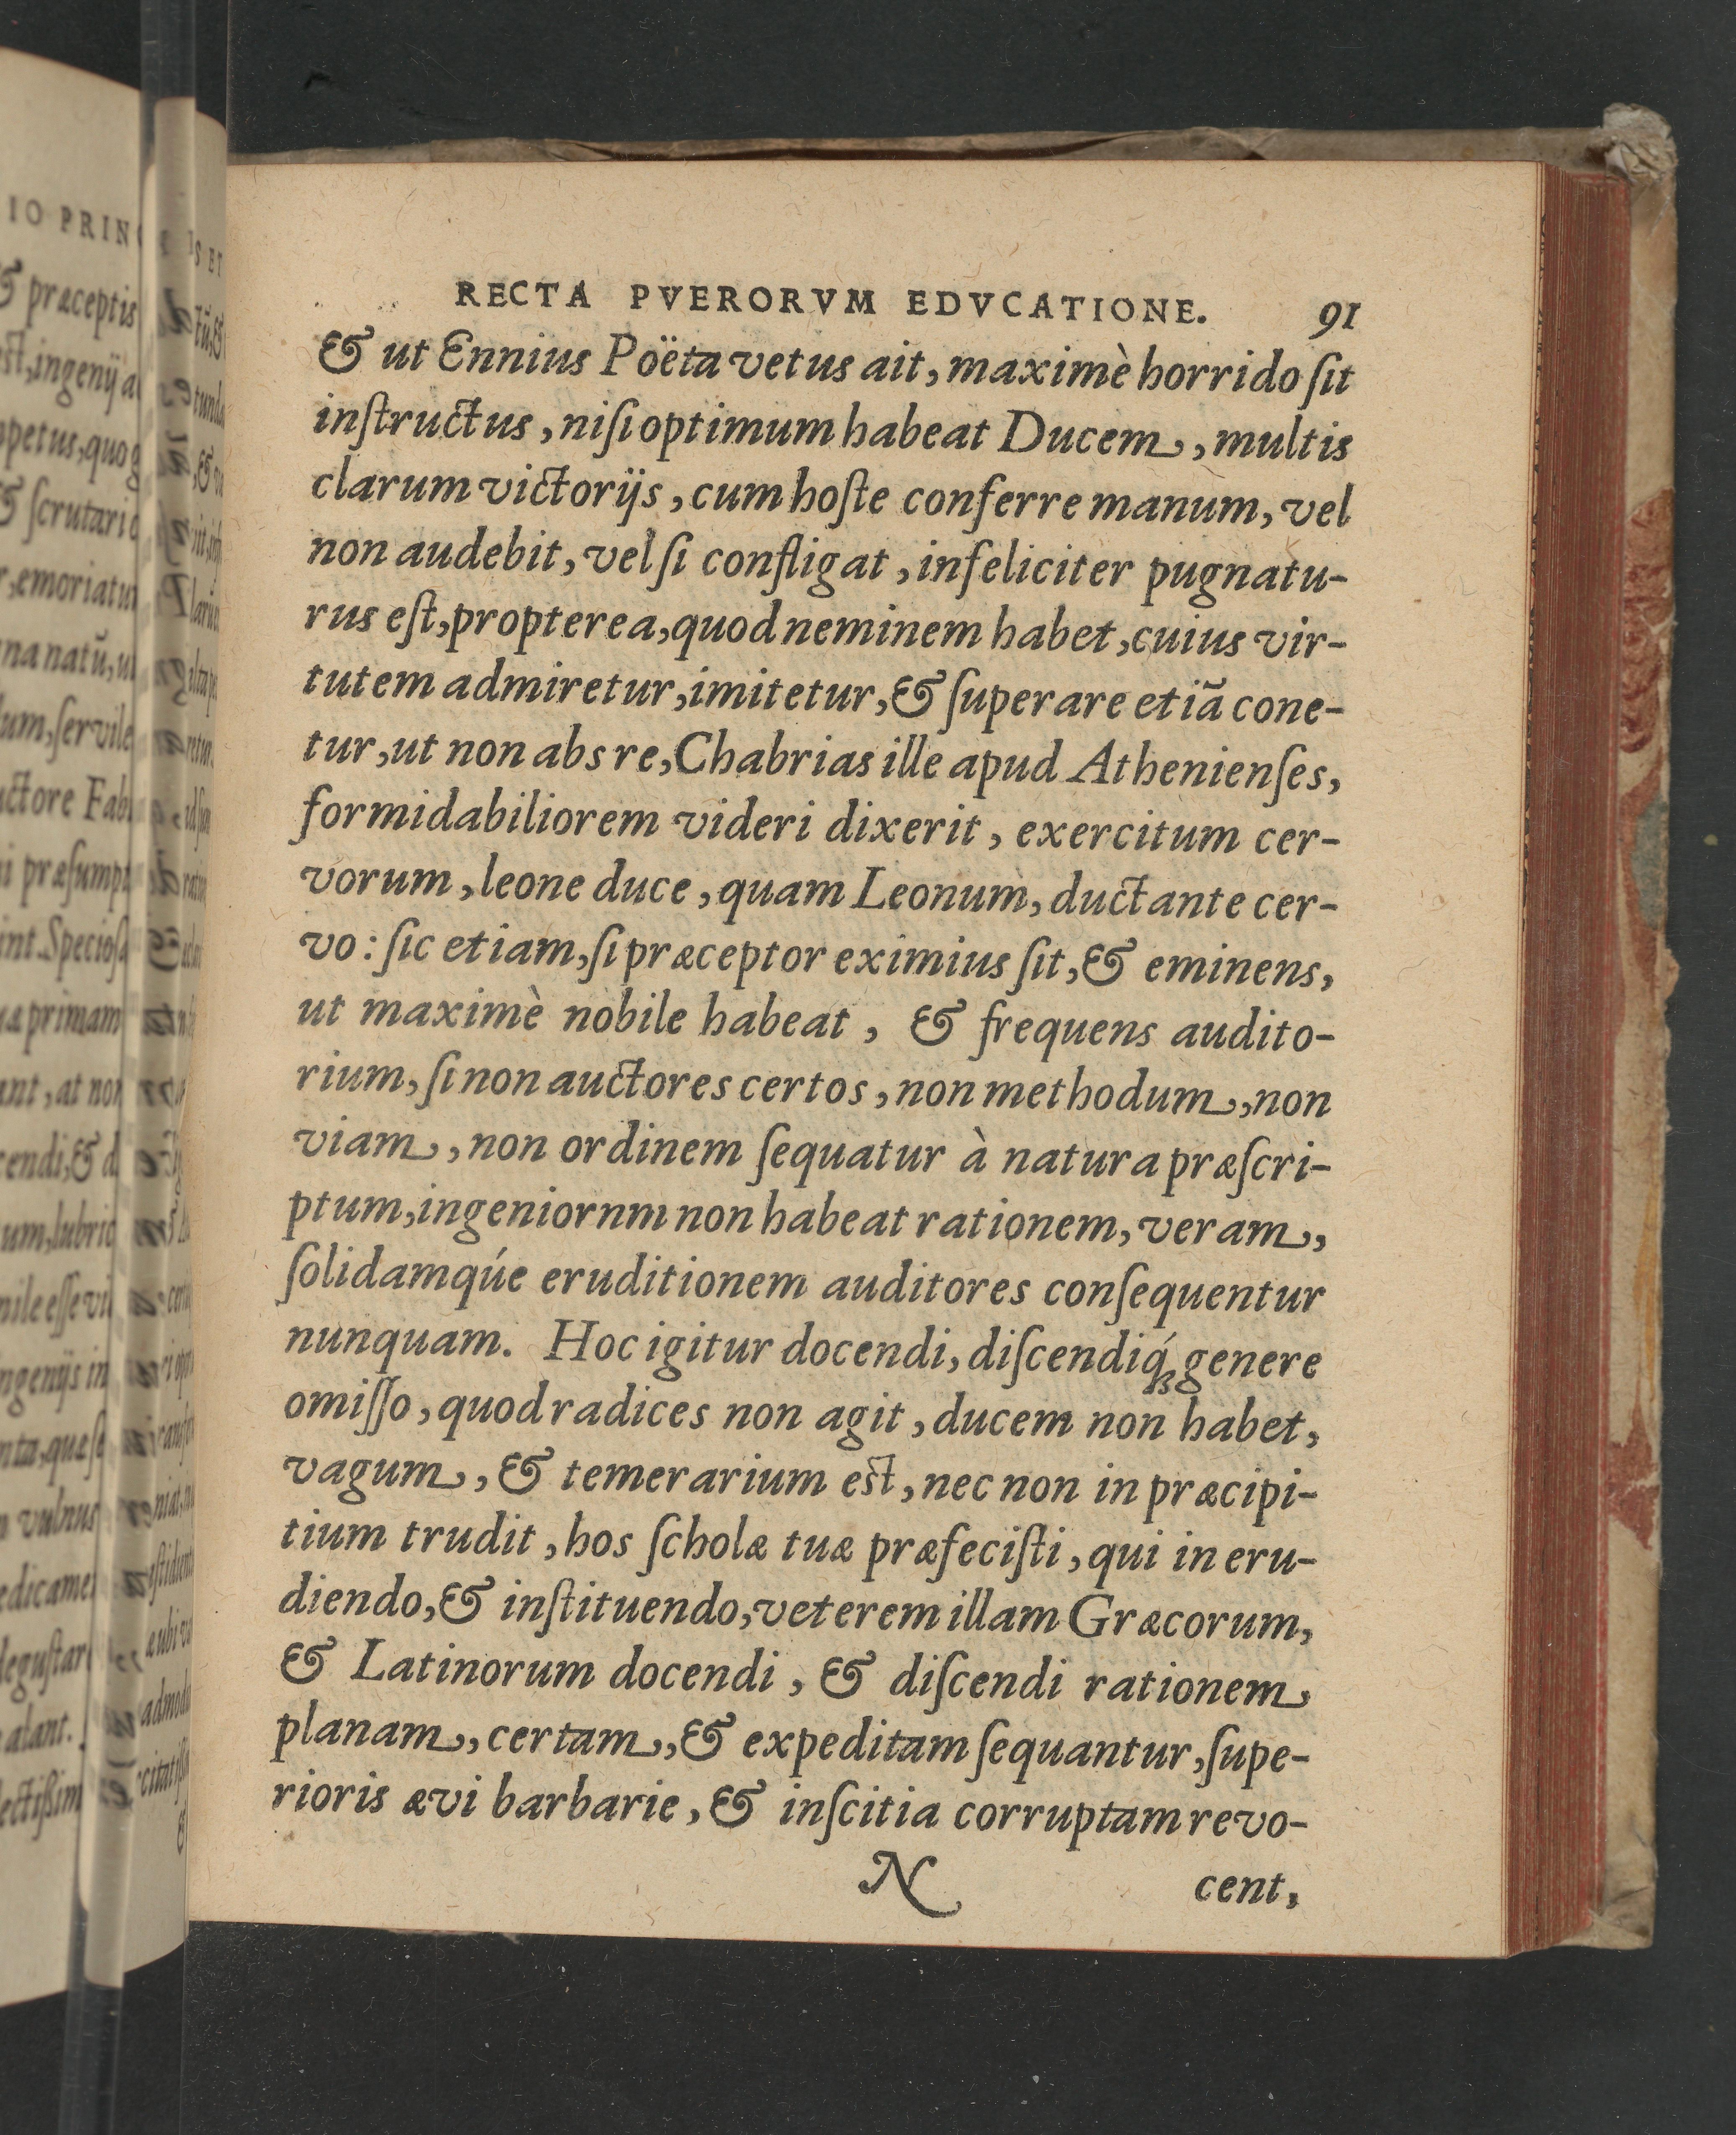 RECTA PVERORVM EDVCATIONE. 91
& ut Ennius Poëta vetus ait, maximè horrido ſit
inſtructus, niſi optimum habeat Ducem, multis
clarum victorijs, cum hoſte conferre manum, vel
non audebit, vel ſi confligat, infeliciter pugnatu-
rus eſt, propterea, quod neminem habet, cuius vir-
tutem admiretur, imitetur, & ſuperare etiã cone-
tur, ut non abs re, Chabrias ille apud Athenienſes,
formidabiliorem videri dixerit, exercitum cer-
vorum, leone duce, quam Leonum, ductante cer-
vo: ſic etiam, ſi præceptor eximius ſit, & eminens,
ut maximè nobile habeat, & frequens audito-
rium, ſi non auctores certos, non methodum, non
viam, non ordinem ſequatur à natura præſcri-
ptum, ingeniornm non habeat rationem, veram,
ſolidamqúe eruditionem auditores conſequentur
nunquam. Hoc igitur docendi, diſcendiq́; genere
omiſſo, quod radices non agit, ducem non habet,
vagum, & temerarium est, nec non in præcipi-
tium trudit, hos ſcholæ tuæ præfeciſti, qui in eru-
diendo, & inſtituendo, veterem illam Græcorum,
& Latinorum docendi, & diſcendi rationem
planam, certam, & expeditam ſequantur, ſupe-
rioris ævi barbarie, & inſcitia corruptam revo-
N cent,